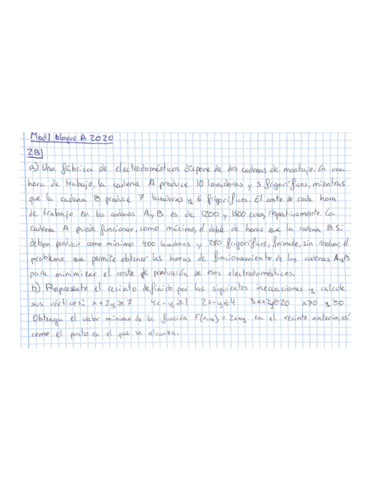 Mod 1 Bloque A 2020
2B)
a) Una fábrica de electrodomésticos dispone de dos cadenas de montaje. En una
hora de trabajo, la cadena A produce 10 lavadoras y 5 frigoríficos, mientras
que la cadena B produce 7 lavadoras y 6 frigoríficos. El coste de cada hora
de trabajo en las cadenas A y B es de 1200 y 1500 euros, respectivamente. La
cadena A puede funcionar, como máximo, el doble de horas que la cadena B. Si
deben producir como mínimo 400 lavadoras y 280 frigoríficos, formule, sin resolver, el
problema que permite obtener las horas de funcionamiento de las cadenas A y B
para minimizar el coste de producción de esos electrodomésticos.
b) Represente el recinto definido por las siguientes inecuaciones y calcule
sus vértices: x+2y≥7 4x-y≥1 2x-y≤4 3x+2y≤20 x≥0 y≥0
Obtenga el valor mínimo de la función F(x,y)=2x+y en el recinto anterior, así
como el punto en el que se alcanza.